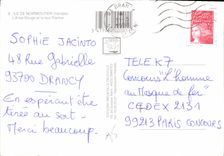 ILE DE NOIRMOUTIER (Vendée)
SOPHIE JACINTO
48 Rue Gabrielle
93700 DRANCY
En espérant être
tirée au sort -
Merci beaucoup.
TELE K7
Concours "l'homme
au Masque de fer"
CEDEX 2131
99213 PARIS CONCOURS